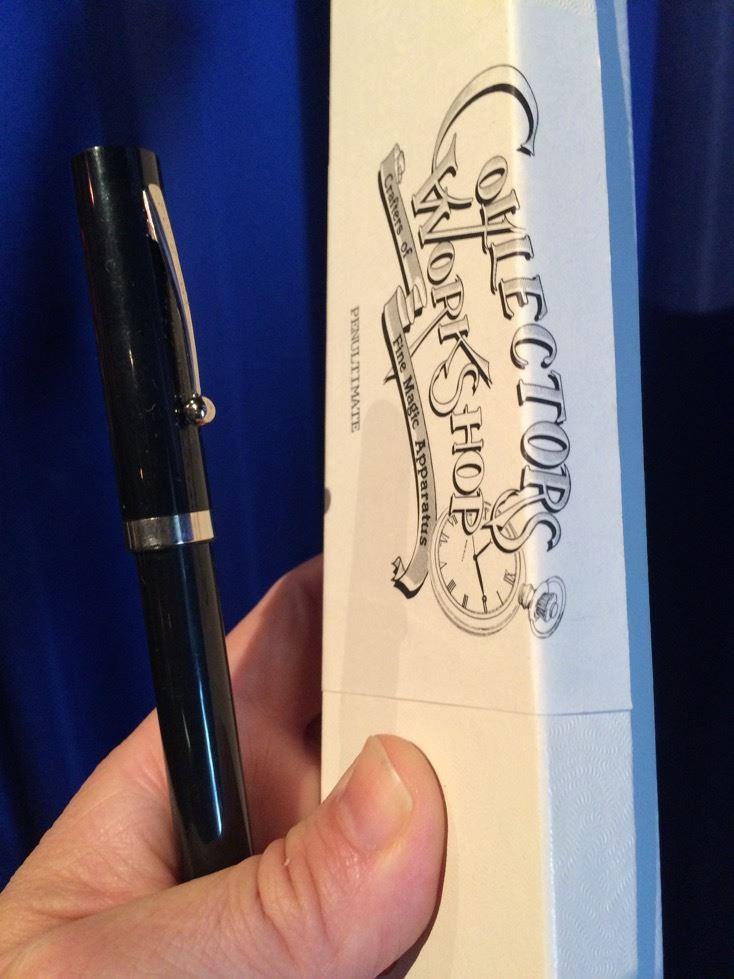 COLLECTORS
WORKSHOP
Crafters of Fine Magic Apparatus
PENULTIMATE